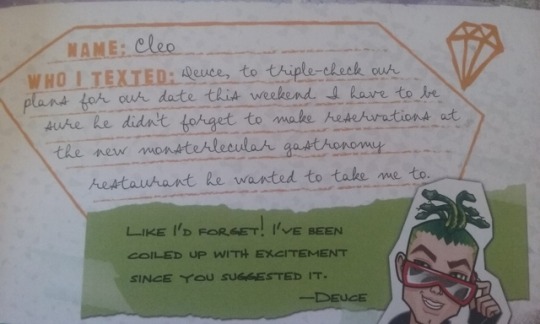 NAME: Cleo
WHO I TEXTED: Deuce, to triple-check our
plans for our date this weekend. I have to be
sure he didn't forget to make reservations at
the new monsterlecular gastronomy
restaurant he wanted to take me to.
LIKE I'D FORGET! I'VE BEEN
COILED UP WITH EXCITEMENT
SINCE YOU SUGGESTED IT.
—DEUCE